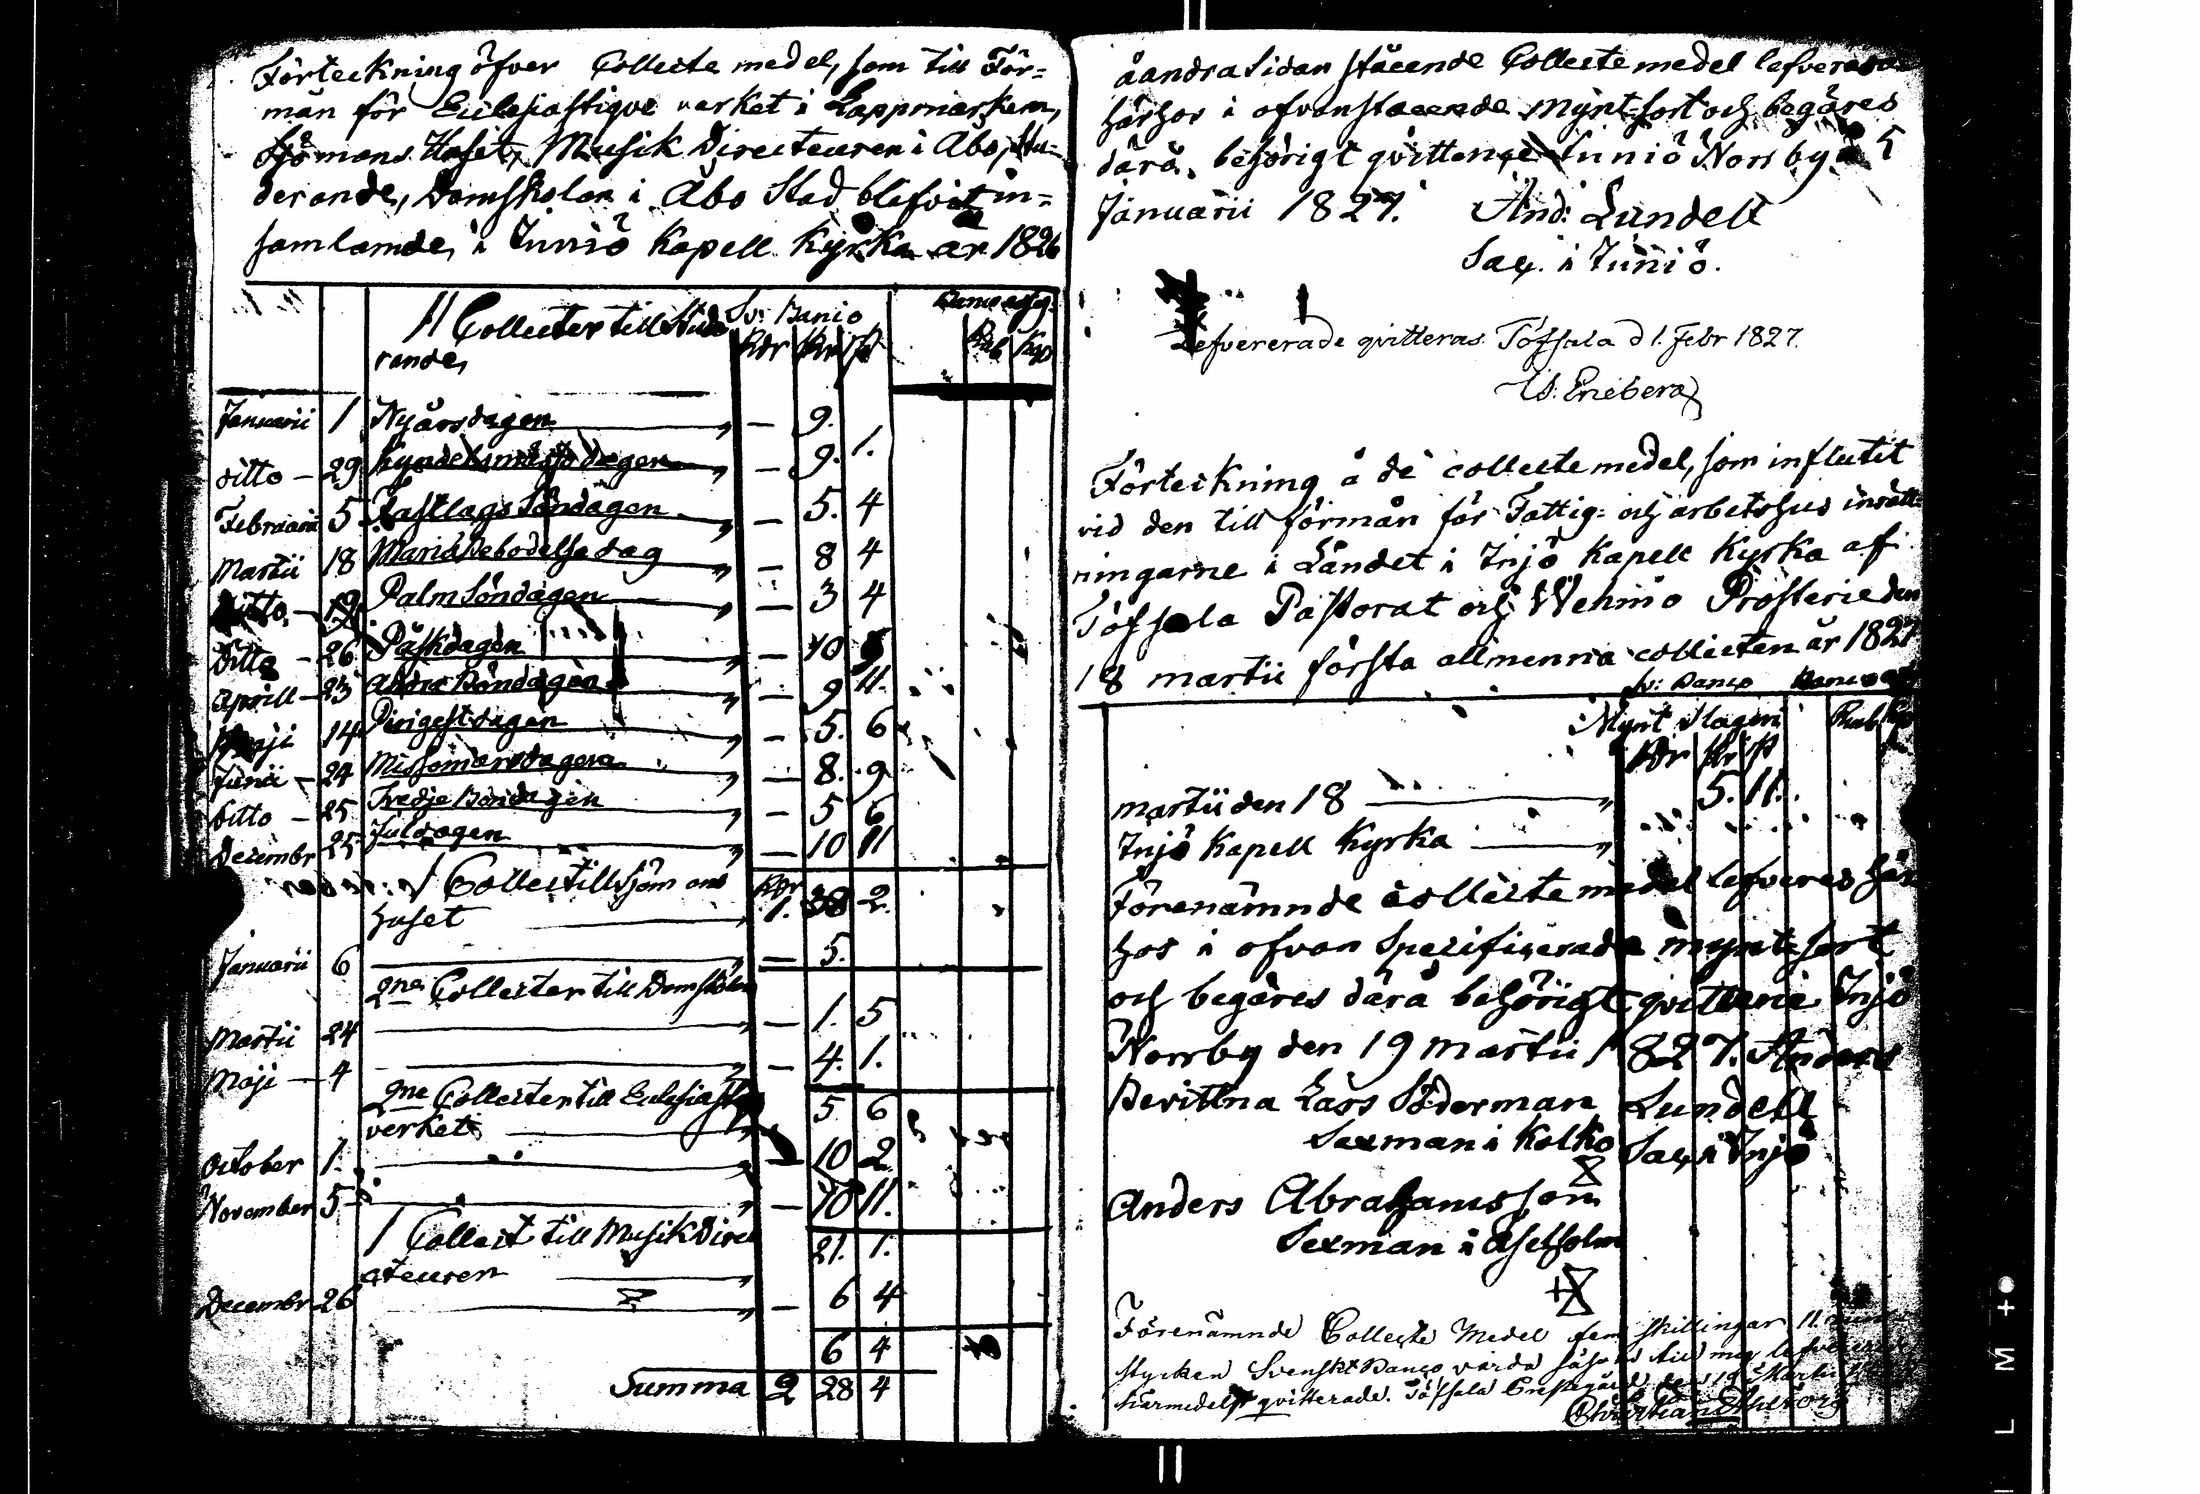 Förteckning öfver Collecte medel, som till För=
mån för Ecclesiastique verket i Lappmarken,
Sjömans Huset, Musik Directeuren i Åbo, Stu=
derande, Domskolan i Åbo Stad blefvit in=
samlamde, i Iuniö Kapell Kyrka år 1826
11 Collecter till Stude Sv: Banco Banco assg.
rande, Rdr sk r Rub Kop
Januarii 1 Nyårsdagen — 9.
ditto — 29 Kyndelsmässo dagen — 9. 1.
Februarii 5 Fastlags Söndagen — 5. 4
Martii 18 Mariæ Bebodelse dag — 8 4
ditto — 19 Palm Söndagen — 3 4
Ditto — 26 Påskdagen — 10
Aprill — 23 Andra Böndagen — 9 11.
Maji 14 Pingestdagen — 5. 6
Junii — 24 Missomarsdagen — 8. 9
ditto — 25 Tredje Böndagen — 5 6
Decembr 25 Juldagen — 10 11
1 Collect till Sjöm ans Rdr
huset 1. 38 2.
Januarii 6 — 5.
2ne Collecter till Domskolan
Martii 24 — 1. 5
Maji — 4 — 4. 1.
2ne Collecter till Eclesiastique 5 6
verket
October 1. — 10 2
November 5 — 10 11.
1 Collect till Musik Direc 21. 1.
cteuren
Decembr 26 — 6 4
6 4
Summa 2 28 4
å andra sidan stående Collecte medel lefverades
härhos i ofvanstaende mynt-sort och begäres
därå behörigt qvittence Iuniö Norrby d 5
Januarii 1827. And: Lundell
Sax. i Iuniö.
Lefvererade qvitteras. Töfsala d 1. Febr 1827.
U: Eneberg
Förteckning å de collecte medel, som influtit
vid den till förmån för Fattig= och arbetshus inrätt
ningarne i Landet i Injö Kapell Kyrka af
Töfsala Pastorat och Wehmo Prosterie den
18 martii första allmenna collecten år 1827
Sv: Banco Banco ass
Mynt slagen Rub Kop
Rdr sk r
martii den 18 — 5. 11.
Injö Kapell Kyrka
Förenämnde collecte medel lefveres här
hos i ofvan Specificerade mynt-sort
och begäres dära behörigt qvittence Injö
Norrby den 19 Martii 1827. Anders
Bevittna Lars Söderman Lundell
Sexman i Kolko Sax i Injö
Anders Abrahamsson
Sexman i Aselholm
Förenämnde Collecte Medel fem skillingar 11. run
stycken Svenskt Banco värda har till mig lefvererats
härmedelst qvitterade. Töfsala Prestegård den 19 Martii
Christian
I L M